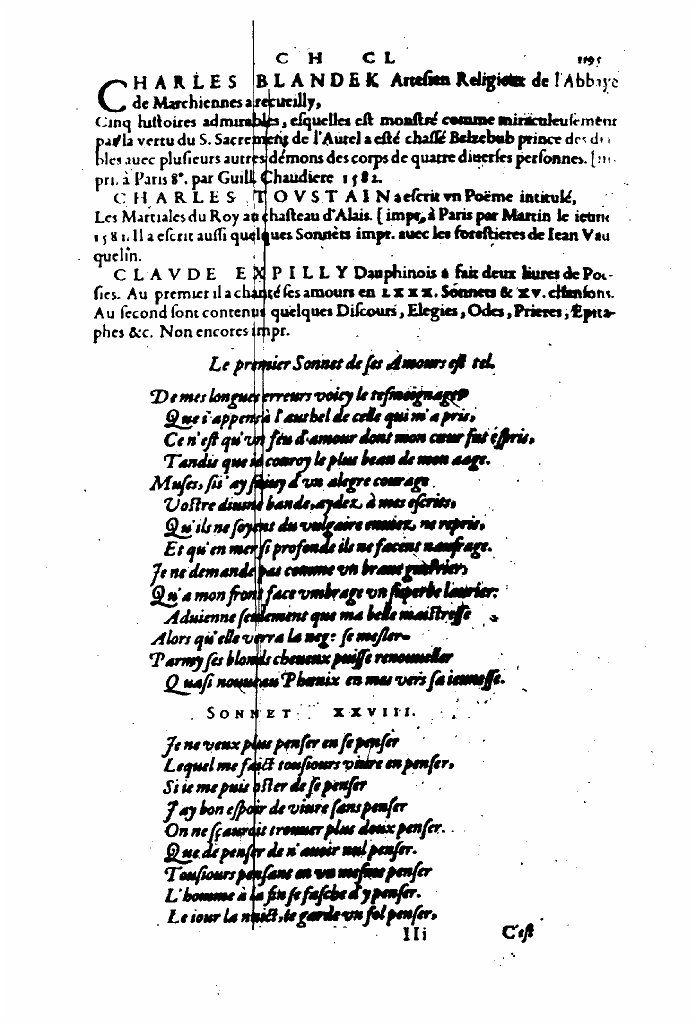 CH CL 1195
CHARLES BLANDEK Artesien Religieux de l'Abbaye
de Marchiennes a recueilly,
Cinq histoires admirables, esquelles est monstré comme miraculeusement
par la vertu du S. Sacrement de l'Autel a esté chassé Belzebub prince des dia
bles auec plusieurs autres démons des corps de quatre diuerses personnes. [im-
pri. à Paris 8°. par Guill. Chaudiere 1582.
CHARLES TOVSTAIN a escrit vn Poëme intitulé,
Les Martiales du Roy au chasteau d'Alais. [impr. à Paris par Martin le ieune
1581. Il a escrit aussi quelques Sonnets impr. auec les forestieres de Iean Vau
quelin.
CLAVDE EXPILLY Dauphinois a fait deux liures de Poe-
sies. Au premier il a chanté ses amours en LXXX. Sonnets & XV. chansons.
Au second sont contenus quelques Discours, Elegies, Odes, Prieres, Epita-
phes &c. Non encores impr.
Le premier Sonnet de ses Amours est tel.
De mes longues erreurs voicy le tesmoignage
Que i'appens à l'authel de celle qui m'a pris,
Ce n'est qu'vn feu d'amour dont mon cœur fut espris,
Tandis que ie couroy le plus beau de mon aage.
Muses, si i'ay suiuy d'vn alegre courage
Vostre diuine bande, aydez à mes escrits,
Qu'ils ne soyent du vulgaire enuiez, ne repris,
Et qu'en mer si profonde ils ne facent naufrage.
Je ne demande pas comme vn braue guerrier,
Qu'a mon front face vmbrage vn superbe laurier:
Aduienne seulement que ma belle maistresse
Alors qu'elle verra la nege se mesler
Parmy ses blonds cheueux puisse renouueller
Quasi nouueau Phœnix en mes vers sa ieunesse.
SONNET XXVIII.
Je ne veux plus penser en se penser
Lequel me faict tousiours viure en penser,
Si ie me puis oster de se penser
J'ay bon espoir de viure sans penser
On ne sçauroit trouuer plus doux penser.
Que de penser de n'auoir nul penser.
Tousiours pensant en vn mesme penser
L'homme à la fin se fasche d'y penser.
Le iour la nuict, ie garde vn fol penser,
IIi C'est